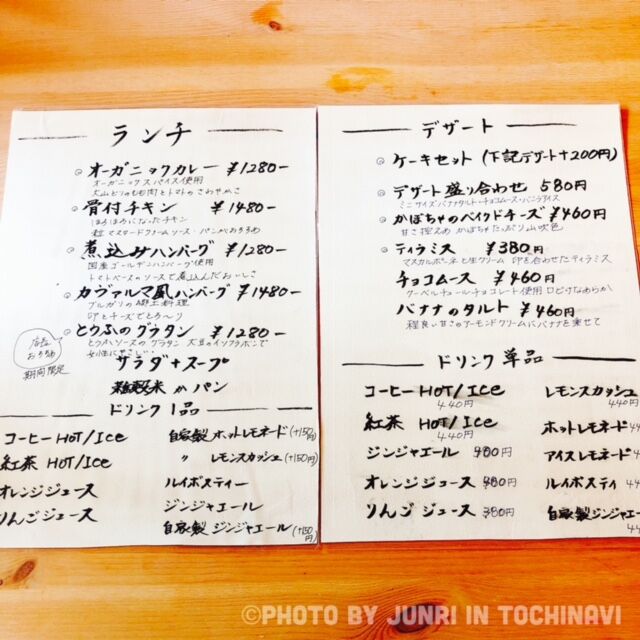 ランチ
オーガニックカレー ¥1280-
オーガニックスパイス使用
大山どりのもも肉とトマトのさわやかさ
骨付チキン ¥1480-
ほろほろになったチキン
粒マスタードクリームソース・パンがおすすめ
煮込みハンバーグ ¥1280-
国産ゴールデンハンバーグ使用
トマトベースのソースで煮込んだおいしさ
カヴァルマ風ハンバーグ ¥1480-
ブルガリアの郷土料理
卵とチーズでとろ〜り
とうふのグラタン ¥1280-
とうふソースのグラタン 大豆のイソフラボンで
女性にやさしい
店長おすすめ
期間限定
サラダ+スープ
or パン
ドリンク1品
コーヒーHOT/Ice
紅茶 HOT/Ice
オレンジジュース
りんごジュース
自家製 ホットレモネード(+150円)
〃 レモンスカッシュ(+150円)
ルイボスティー
ジンジャエール
自家製 ジンジャエール(+150円)
デザート
ケーキセット (下記デザート+200円)
デザート盛り合わせ 580円
ミニサイズバナナタルト・チョコムース・バニラアイス
かぼちゃのベイクドチーズ ¥460円
甘さ控えめ かぼちゃたっぷり山吹色
ティラミス ¥380円
マスカルポーネと生クリーム 卵を合わせたティラミス
チョコムース ¥460円
クーベルチュールチョコレート使用 口どけなめらか
バナナのタルト ¥460円
程良い甘さのアーモンドクリームにバナナを乗せて
ドリンク単品
コーヒー HOT/Ice
440円
紅茶 HOT/Ice
440円
ジンジャエール 400円
オレンジジュース 480円
りんごジュース 380円
レモンスカッシュ
440円
ホットレモネード
アイスレモネード
ルイボスティ
自家製ジンジャエール
©PHOTO BY JUNRI IN TOCHINAVI